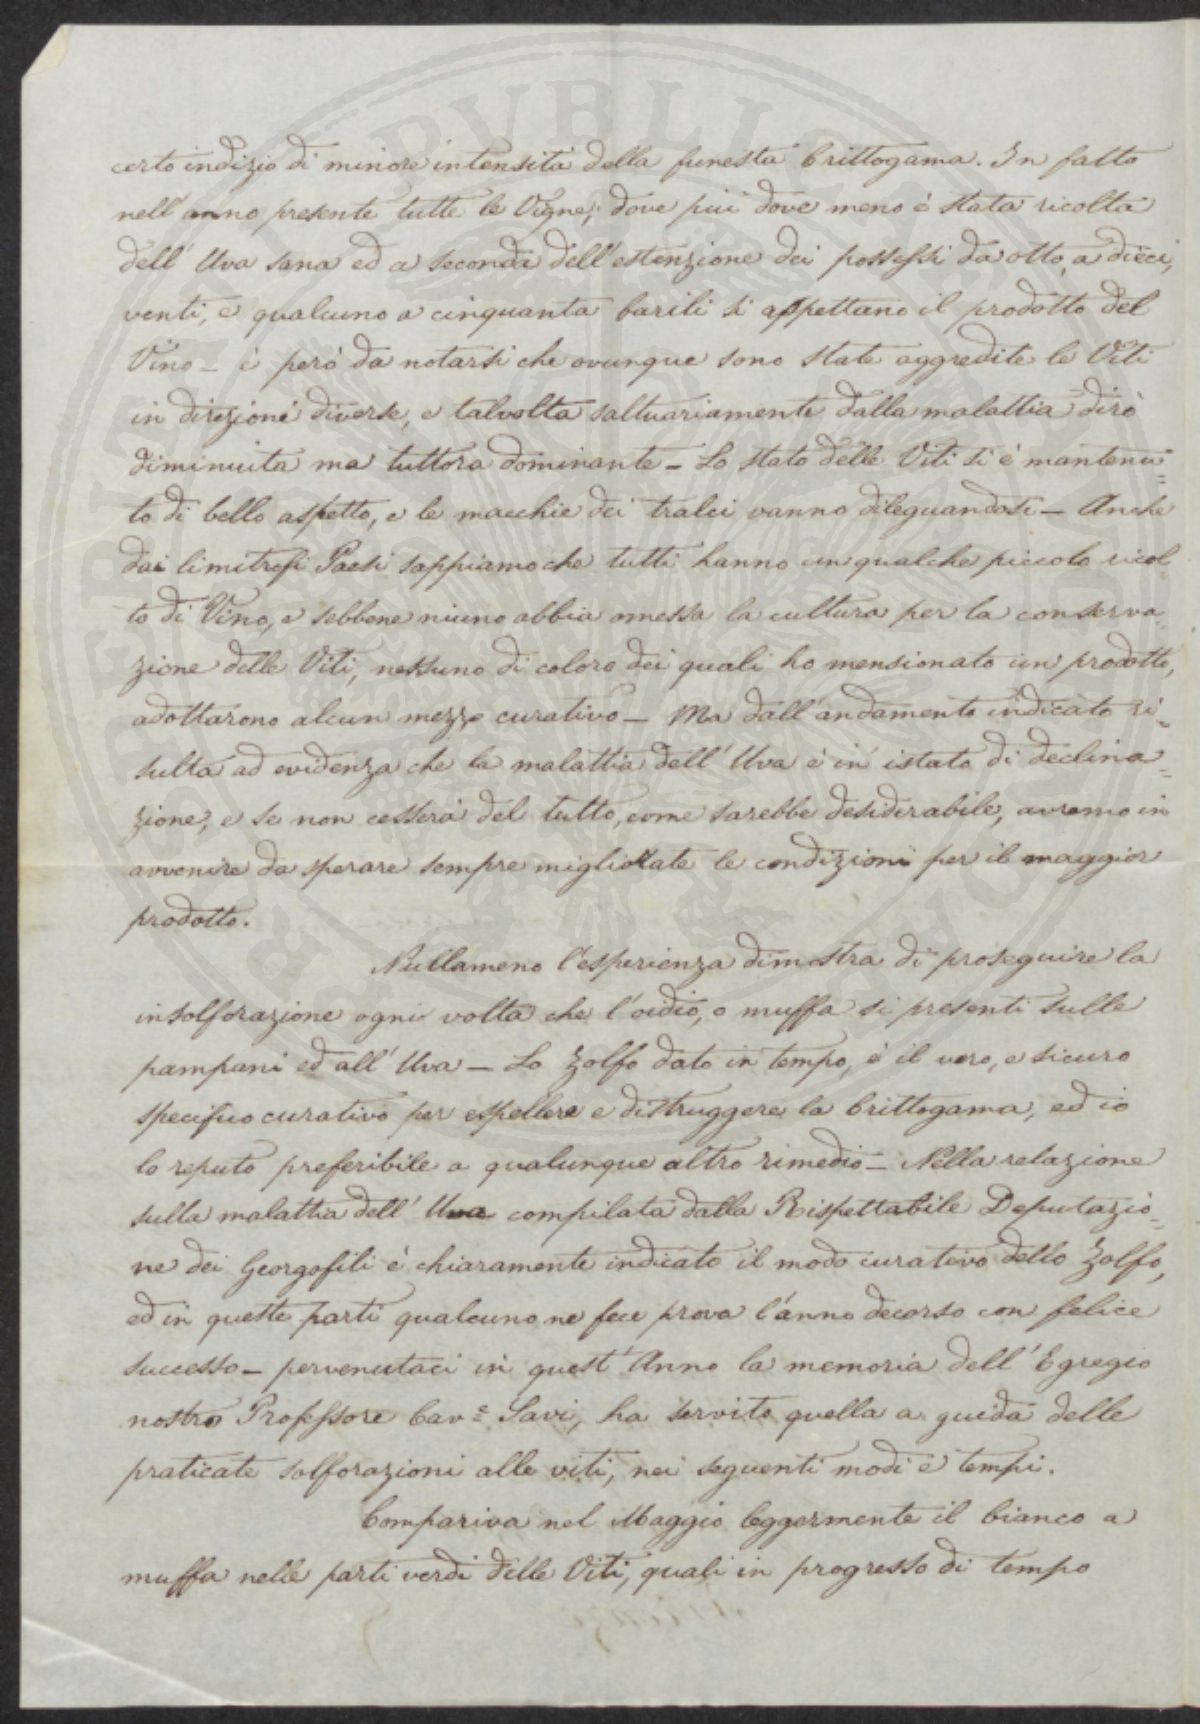 certo indizio di minore intensità della funesta Crittogama. In fatto
nell'anno presente tutte le Vigne, dove più dove meno è stata ricolta
dell'Uva sana ed a seconda dell'estenzione dei possessi da otto, a dieci,
venti, e qualcuno a cinquanta barili si aspettano il prodotto del
Vino – è però da notarsi che ovunque sono state aggredite le Viti
in direzioni diverse, e talvolta saltuariamente dalla malattia dirò
diminuita ma tuttora dominante – Lo stato delle Viti si è mantenu=
to di bello aspetto, e le macchie dei tralci vanno dileguandosi – Anche
dai limitrofi Paesi sappiamo che tutti hanno un qualche piccolo ricol=
to di Vino, e sebbene niuno abbia omessa la cultura per la conserva
zione delle Viti, nessuno di coloro dei quali ho mensionato un prodotto,
adottarono alcun mezzo curativo – Ma dall'andamento indicato ri=
sulta ad evidenza che la malattia dell'Uva è in istato di declina=
zione, e se non cesserà del tutto, come sarebbe desiderabile, avremo in
avvenire da sperare sempre migliorate le condizioni per il maggior
prodotto.
Nullameno l'esperienza dimostra di proseguire la
insolforazione ogni volta che l'oidio, o muffa si presenti sulle
pampani ed all'Uva – Lo Zolfo dato in tempo, è il vero, e sicuro
specifico curativo per espellere e distruggere la Crittogama, ed io
lo reputo preferibile a qualunque altro rimedio – Nella relazione
sulla malattia dell'Uva compilata dalla Rispettabile Deputazio=
ne dei Georgofili è chiaramente indicato il modo curativo dello Zolfo,
ed in queste parti qualcuno ne fece prova l'anno decorso con felice
successo – pervenutaci in quest'Anno la memoria dell'Egregio
nostro Professore Cav.e Savi, ha servito quella a guida delle
praticate solforazioni alle viti, nei seguenti modi e tempi.
Compariva nel Maggio leggermente il bianco a
muffa nelle parti verdi delle Viti, quali in progresso di tempo